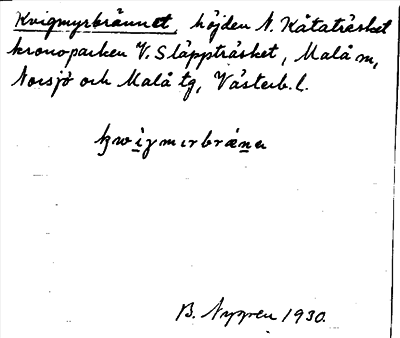 Kvigmyrbrännet, höjden N. Kåtaträsket
kronoparken V. Släppträsket, Malå m,
Norsjö och Malå tg, Västerb. l.
B. Nygren 1930.